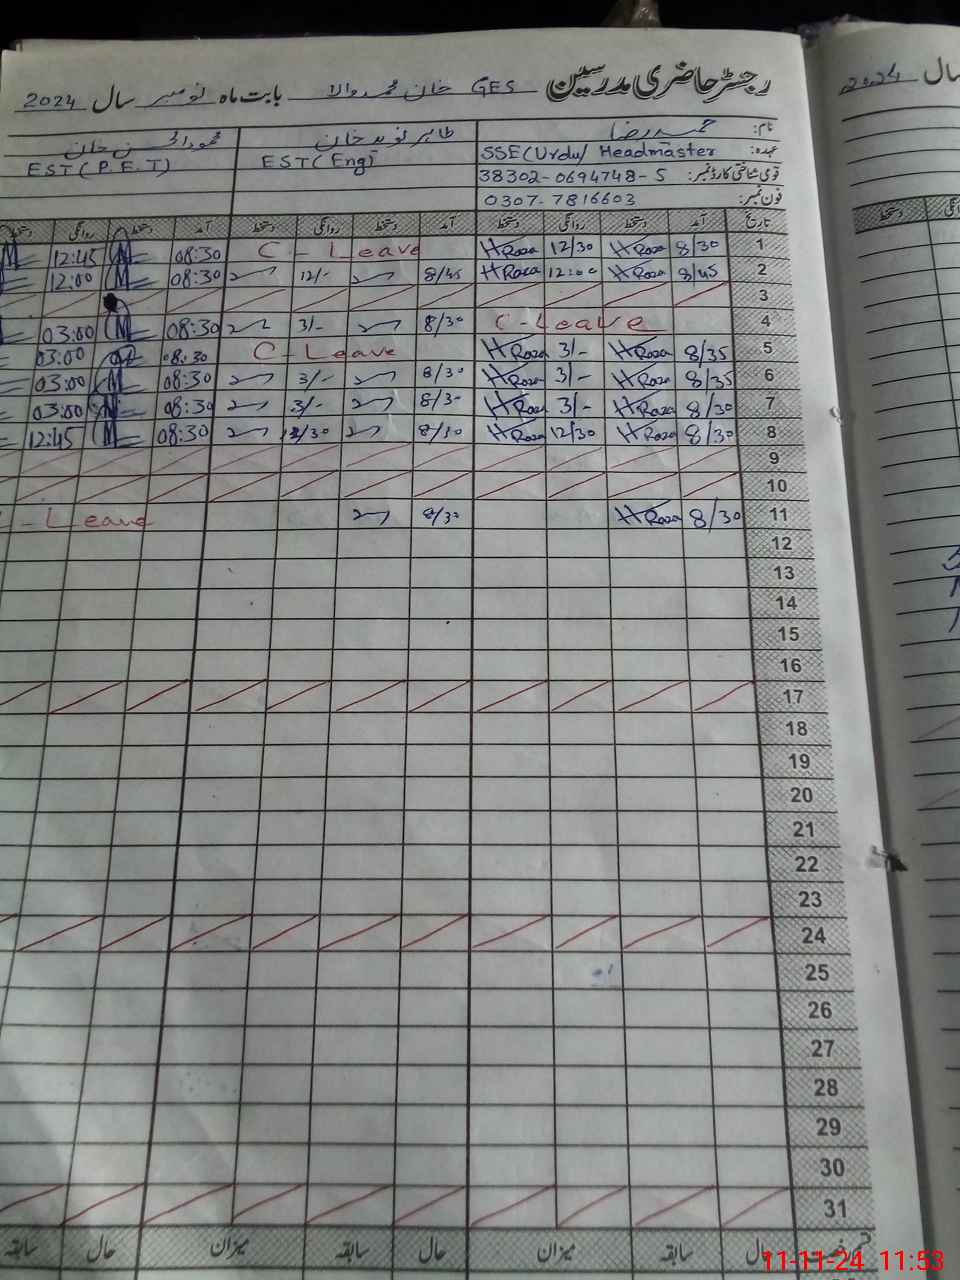 رجسٹر حاضری مدرسین GES خان محمد والا بابت ماہ نومبر سال 2024
سال 2024
نام: حمید رضا طاہر نوید خان محمود الحسن خان
عہدہ: SSE(Urdu/ Headmaster EST(Eng) EST(P.E.T)
قومی شناختی کارڈ نمبر: 38302-0694748-5
فون نمبر: 0307-7816603
تاریخ آمد دستخط روانگی دستخط آمد دستخط روانگی دستخط آمد دستخط روانگی دستخط
1 8/30 HRaza 12/30 HRaza C-Leave 08:30 12:45
2 8/45 HRaza 12:00 HRaza 8/45 12/- 08:30 12:00
3
4 C-Leave 8/30 3/- 08:30 03:00
5 8/35 HRaza 3/- HRaza C-Leave 08:30 03:00
6 8/35 HRaza 3/- HRaza 8/30 3/- 08:30 03:00
7 8/30 HRaza 3/- HRaza 8/30 3/- 08:30 03:00
8 8/30 HRaza 12/30 HRaza 8/30 12/30 08:30 12:45
9
10
11 8/30 HRaza 8/30 C-Leave
12
13
14
15
16
17
18
19
20
21
22
23
24
25
26
27
28
29
30
31
حال سابقہ میزان حال سابقہ میزان حال سابقہ
11-11-24 11:53